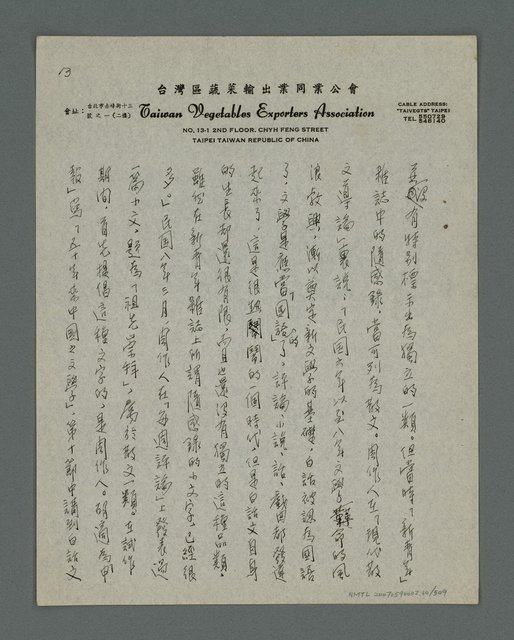 13
台灣區蔬菜輸出業同業公會
會址:台北市赤峰街十三
號之一(二樓)
Taiwan Vegetables Exporters Association
CABLE ADDRESS:
"TAIVEGTS" TAIPEI
TEL. 550729
548140
NO. 13-1 2ND FLOOR. CHYH FENG STREET
TAIPEI TAIWAN REPUBLIC OF CHINA
並沒有特別標示出為獨立的一類。但當時「新青年」
雜誌中的隨感錄,當可列為散文。周作人在「現代散
文導論」裏說,「民國六年以至八年文學革命的風
浪激興,漸以奠定新文學的基礎,白話被認為國語
了,文學是應當「國語的」了,評論小說、詩、戲曲都發達
起來了,這是很熱鬧的一個時代,但是白話文自身
的生長卻還很有限,而且也還沒有獨立的這種品類。
雖然在新青年雜誌上所謂隨感錄的小文字,已經很
多。」民國八年三月,周作人在「每週評論」上發表過
一篇小文,題為「祖先崇拜」,屬於散文一類。在試作
期間,首先提倡這種文字的,是周作人。胡適為申
報」寫「五十年來中國之文學」,第十節中講到白話文
NMTL 20070590002 /509